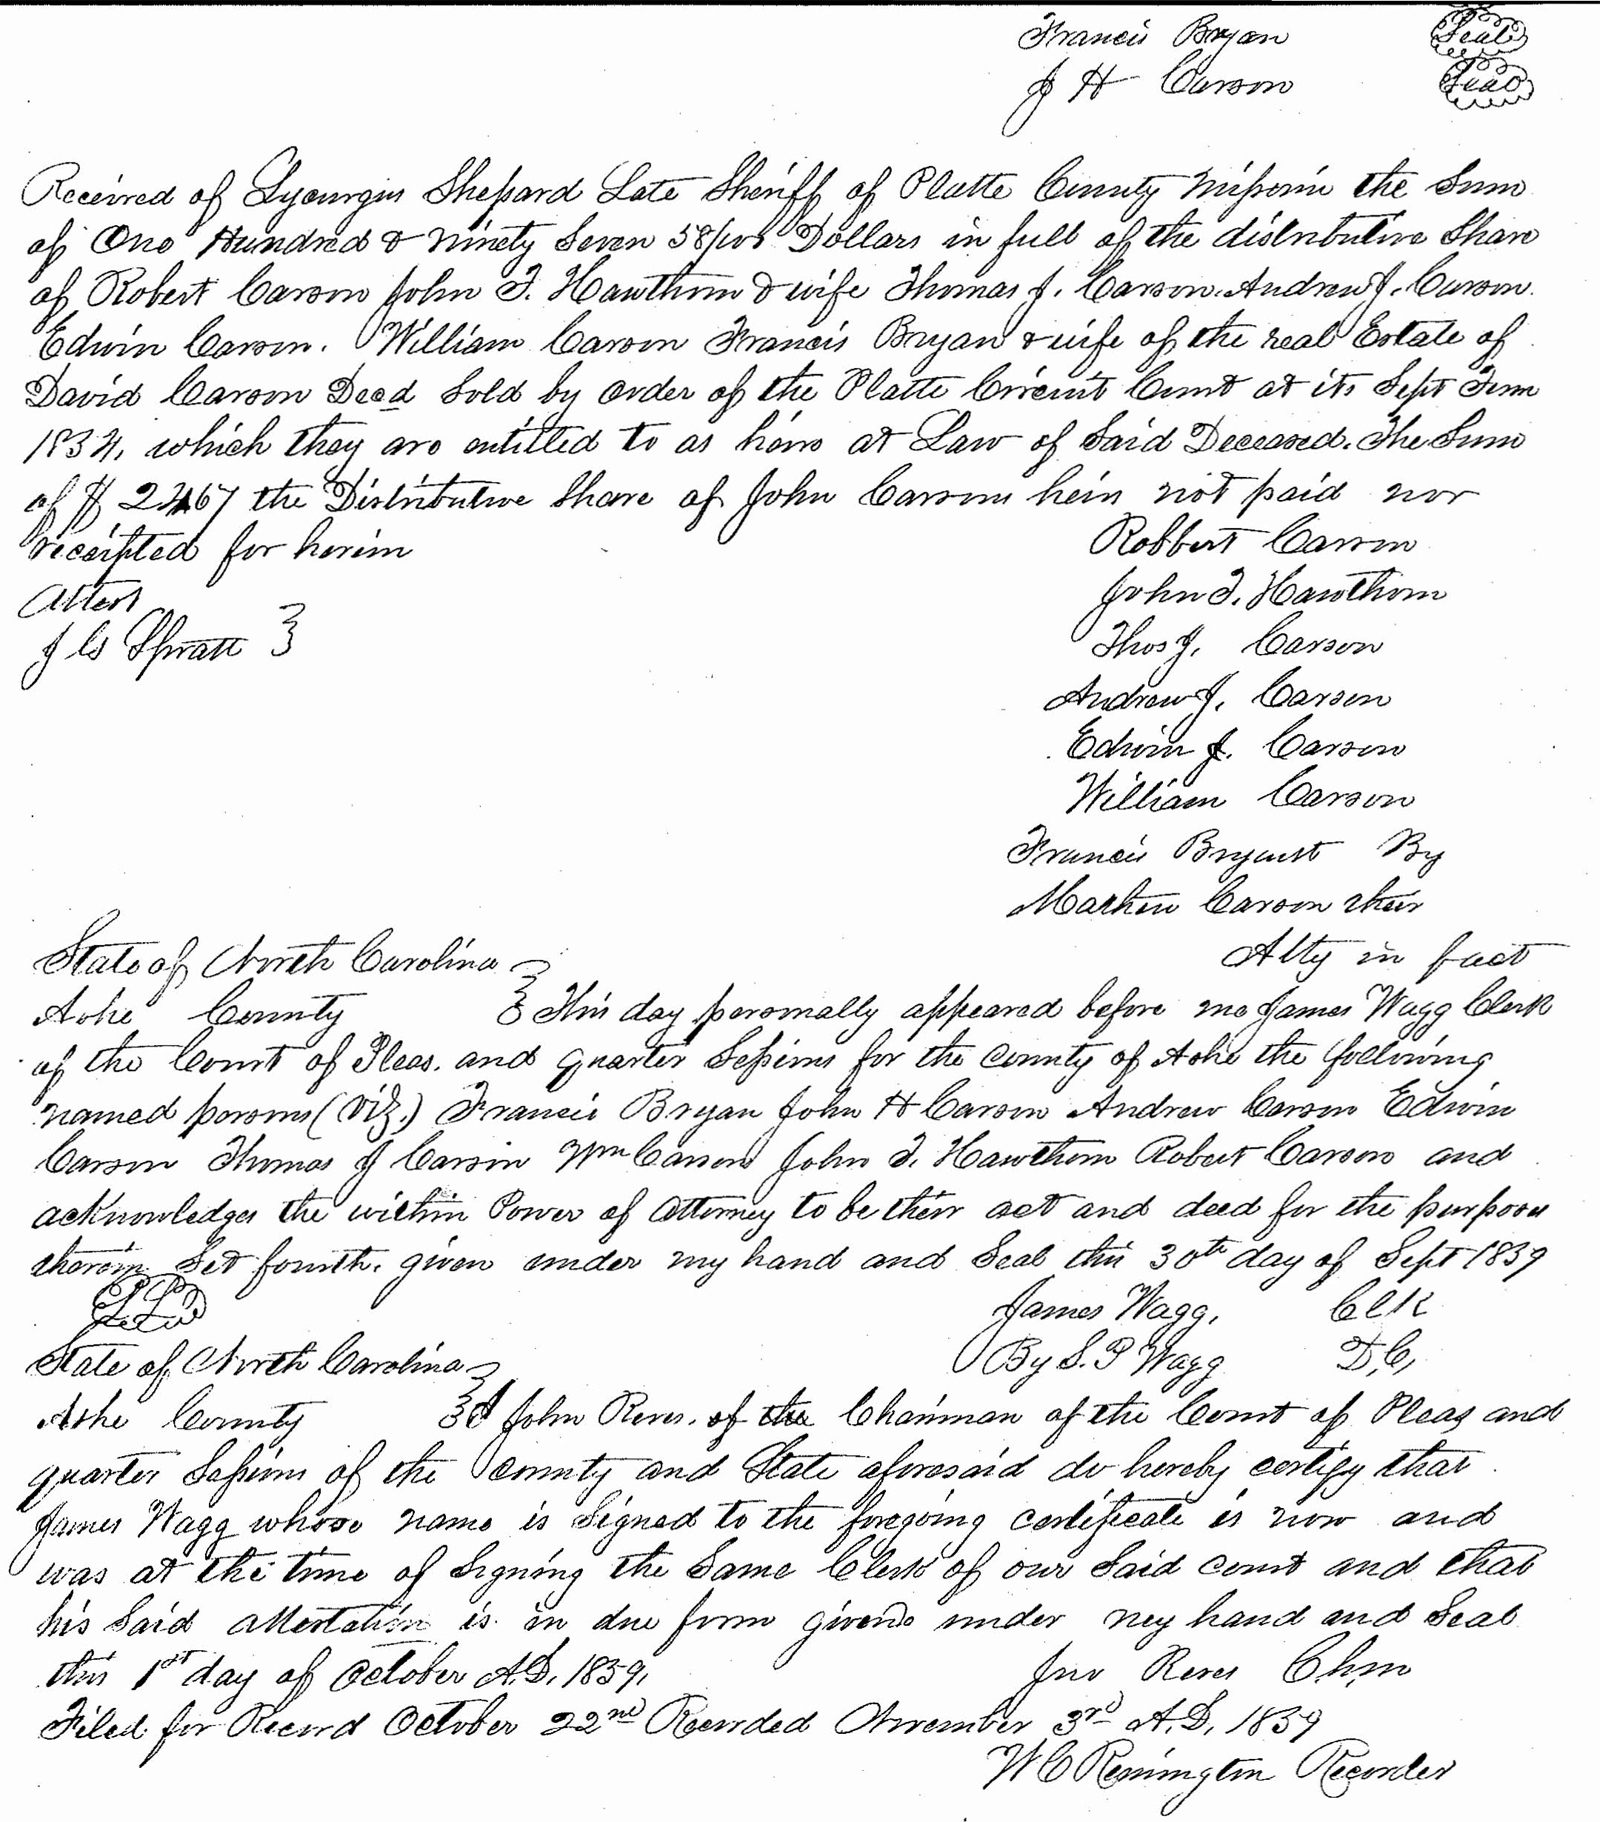 Francis Bryan Seal
J H Carson Seal
Received of Lycurgus Shepard Late Sheriff of Platte County Missouri the Sum
of One Hundred & Ninety Seven 58/100 Dollars in full of the distributive Share
of Robert Carson John F. Hawthorn & wife Thomas J. Carson. Andrew J. Carson.
Edwin Carson. William Carson Francis Bryan & wife of the real Estate of
David Carson Decd Sold by order of the Platte Circuit Court at its Sept Term
which they are entitled to as heirs at Law of Said Deceased. The Sum
of $ the Distributive Share of John Carsons heirs not paid nor
receipted for herein
Robbert Carson
John F. Hawthorn
Attest
J C Spratt
Thos J. Carson
Andrew J. Carson
Edwin J. Carson
William Carson
Francis Bryant By
Carson their
Atty in fact
State of North Carolina
Ashe County This day personally appeared before me James Wagg Clerk
of the Court of Pleas. and quarter Sessions for the County of Ashe the following
named persons (Viz.) Francis Bryan John H Carson Andrew Carson Edwin
Carson Thomas J Carson Wm Carson John F. Hawthorn Robert Carson and
acknowledges the within Power of attorney to be their act and deed for the purposes
therein Set fourth. given under my hand and Seal this 30th day of Sept 1839
Seal
James Wagg, Clk
By S. P Wagg D,C,
State of North Carolina
Ashe County I John Reves. of the Chairman of the Court of Pleas and
quarter Sessions of the County and State aforesaid do hereby certify that
James Wagg whose name is Signed to the foregoing certificate is now and
was at the time of Signing the Same Clerk of our Said court and that
his Said attestation is in due form given under my hand and Seal
this 1st day of October A.D. 1839,
Jno Reves Chm
Filed for Record October 22nd Recorded November 3rd A.D. 1839
W C Remington Recorder